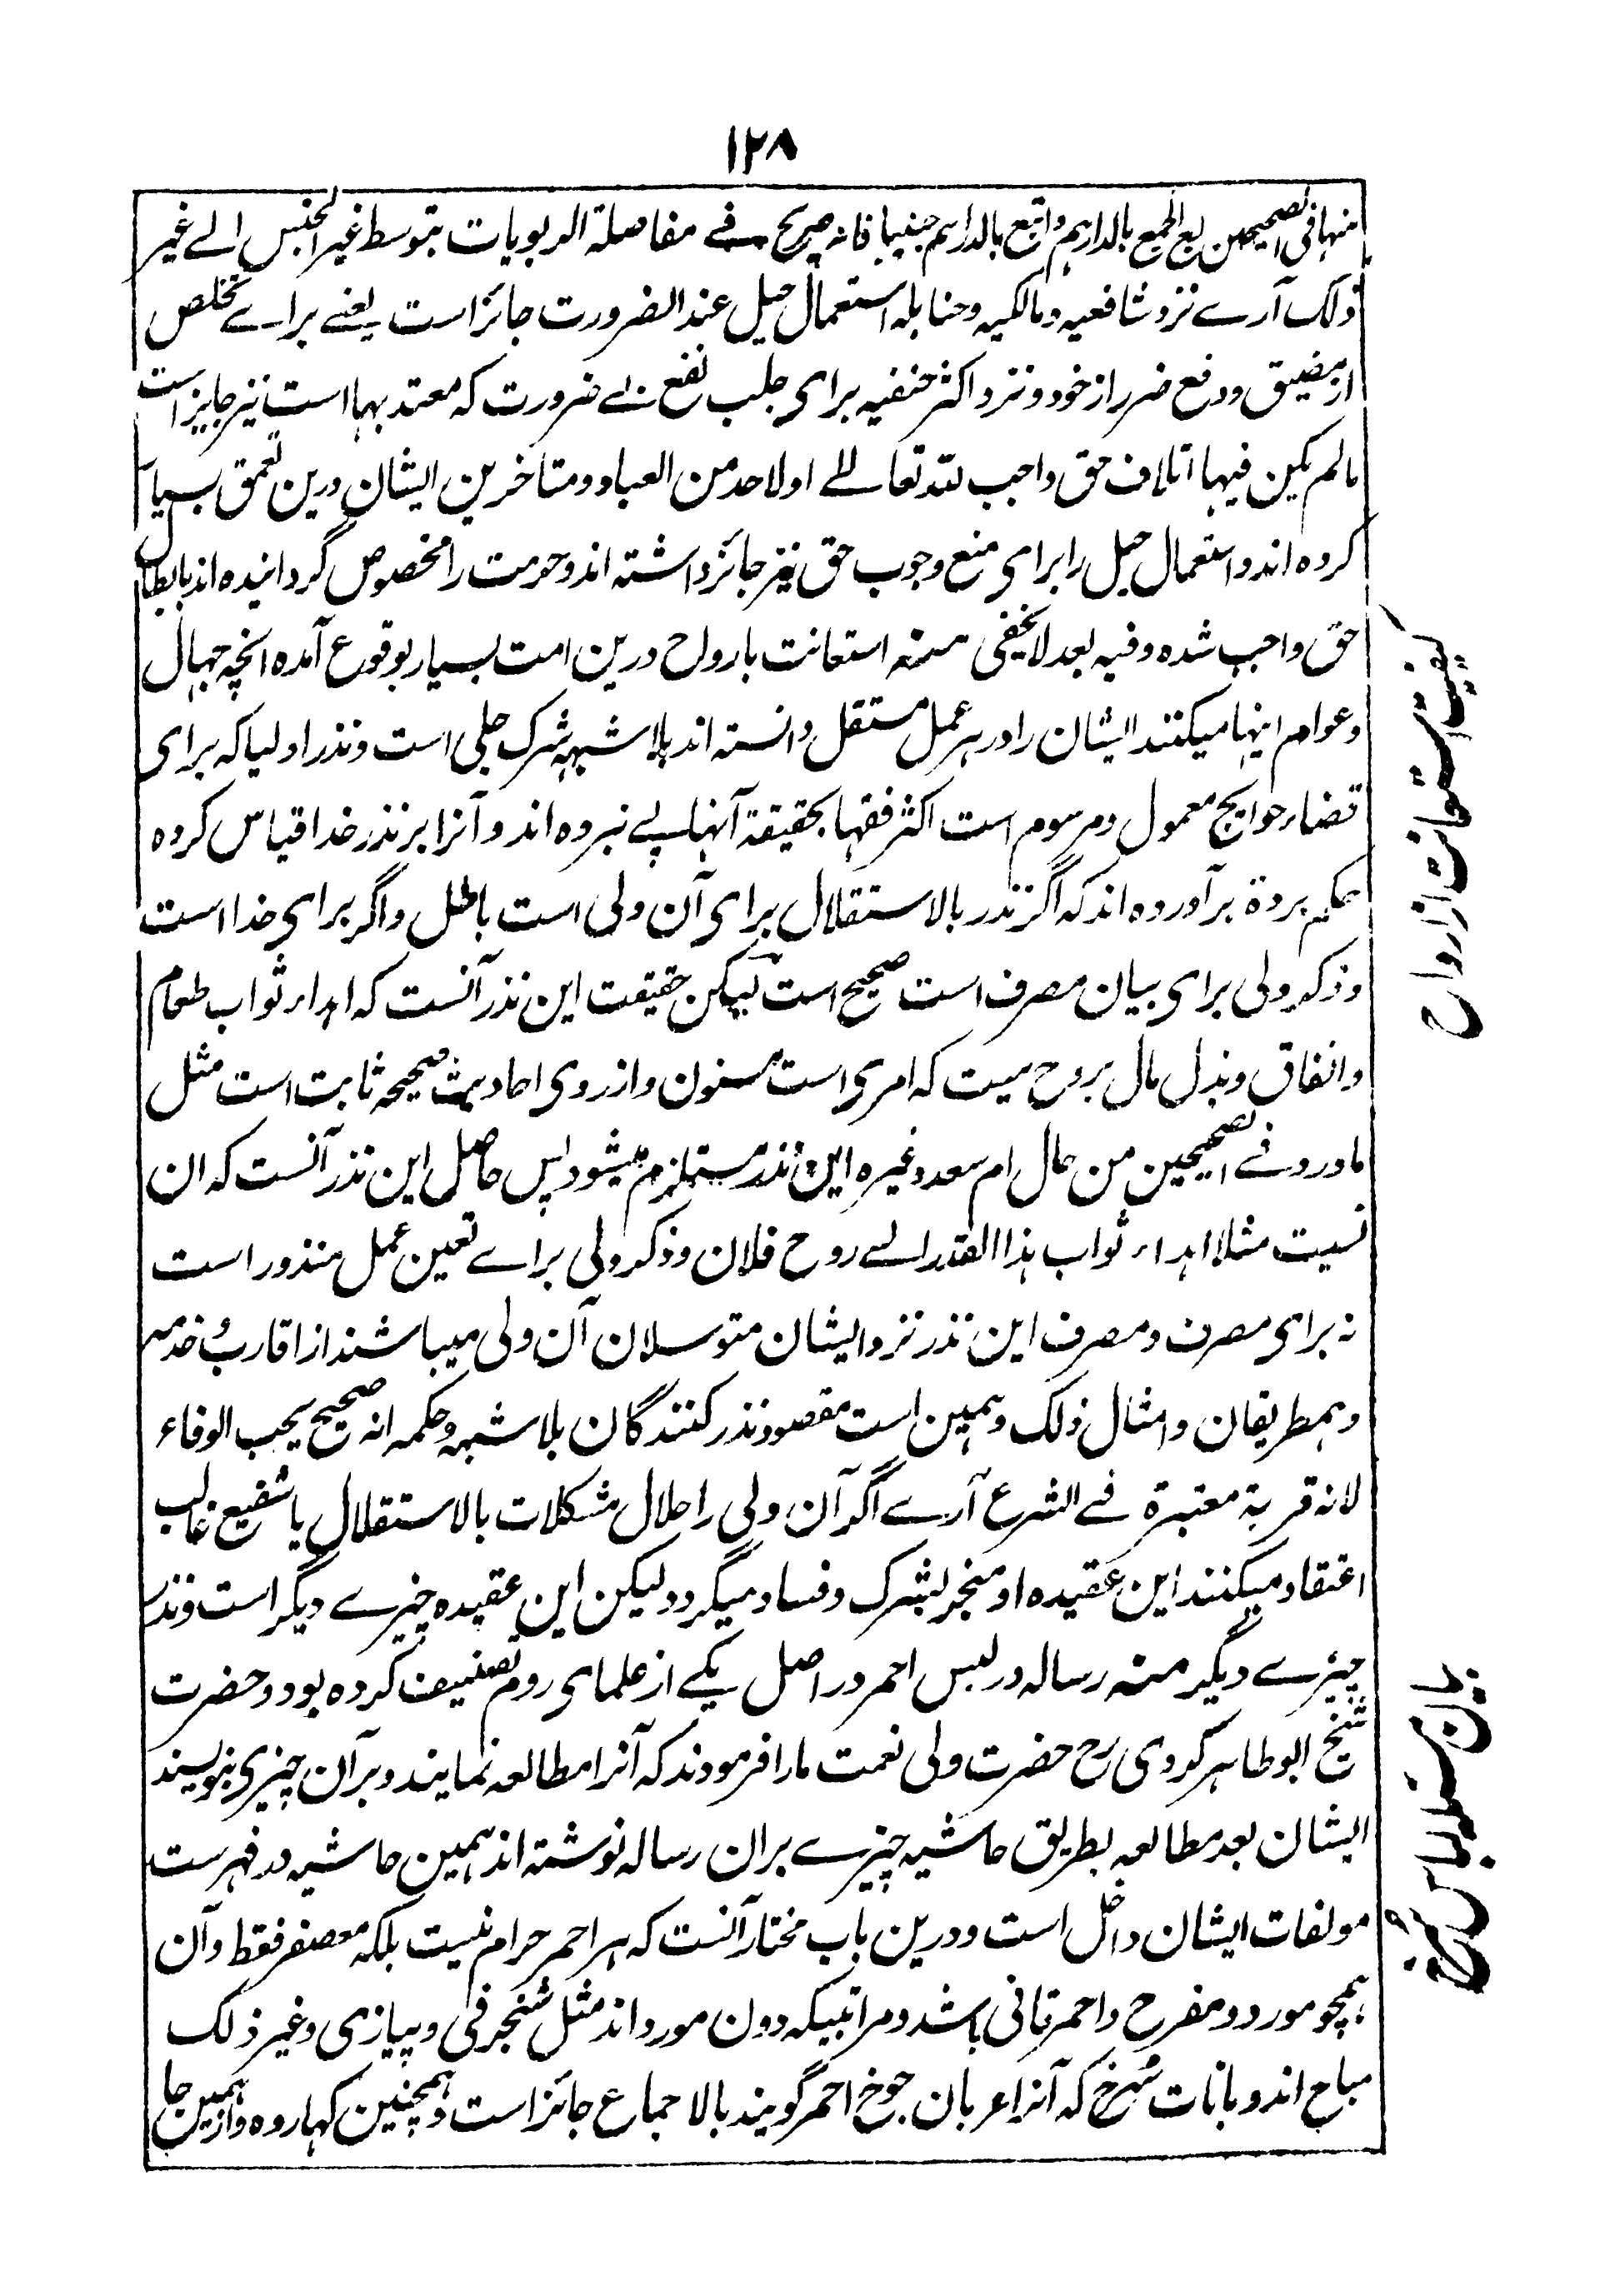 ۱۲۸
منها فی الصحیحین بع الجمع بالدراهم واتبع بالدراهم جنیبا فانه صریح فے مفاضلة الربویات بتوسط غیر الجنس الے غیر
ذلک آرے نزد شافعیه ومالکیه وحنابله استعمال حیل عند الضرورت جائز است یعنے براے تخلص
از مضیق ودفع ضرر از خود ونزد اکثر حنفیه برای جلب نفع بے ضرورت که معتد بها است نیز جایز است
مالم یکن فیها اتلاف حق واجب لله تعالے او لاحد من العباد ومتاخرین ایشان درین تعمق بسیار
کرده اند واستعمال حیل را برای منع وجوب حق نیز جائز داشته اند وحرمت را مخصوص گردانیده اند بابطال
حق واجب شده وفیه بعد لا یخفی منه استعانت بارواح درین امت بسیار بوقوع آمده انچه جهال
وعوام اینها میکنند ایشان را در هر عمل مستقل دانسته اند بلا شبهه شرک جلی است ونذر اولیا که برای
قضاء حوایج معمول ومرسوم است اکثر فقها بحقیقة آنها پے نبرده اند وآنرا بر نذر خدا قیاس کرده
حکم بردة برآورده اند که اگر نذر بالاستقلال برای آن ولی است باطل واگر برای خدا است
وذکر ولی برای بیان مصرف است صحیح است لیکن حقیقت این نذر آنست که اهداء ثواب طعام
وانفاق وبذل مال بروح میت که امری است مسنون واز روی احادیث صحیحه ثابت است مثل
ما ورد فے الصحیحین من حال ام سعد وغیره این نذر مستلزم میشود پس حاصل این نذر آنست که ان
نسبت مثلا اهداء ثواب هذا القدر الے روح فلان وذکر ولی براے تعین عمل منذور است
نه برای مصرف ومصرف این نذر نزد ایشان متوسلان آن ولی میباشند از اقارب وخدمه
وهمطریقان وامثال ذلک وهمین است مقصود نذر کنندگان بلا شبهه وحکمه انه صحیح یجب الوفاء
لانه قربة معتبرة فے الشرع آرے اگر آن ولی را حلال مشکلات بالاستقلال یا شفیع غالب
اعتقاد میکنند این عقیده او منجر بشرک وفساد میگردد لیکن این عقیده چیزے دیگر است ونذر
چیزے دیگر منه رساله در لبس احمر در اصل یکے از علمای روم تصنیف کرده بود وحضرت
شیخ ابو طاهر کردی رح حضرت ولی نعمت مارا فرمودند که آنرا مطالعه نمایند وبر آن چیزی بنویسند
ایشان بعد مطالعه بطریق حاشیه چیزے بران رساله نوشته اند همین حاشیه در فهرست
مولفات ایشان داخل است ودرین باب مختار آنست که هر احمر حرام نیست بلکه معصفر فقط وآن
همچو مورد ومفرح واحمر قانی باشد ومراتبیکه دون مورد اند مثل شنجرفی وپیازی وغیر ذلک
مباح اند وبانات سرخ که آنرا عربان جوخ احمر گویند بالاجماع جائز است وهمچنین کهاروه وازهمین جا
کیفیت استعانت از ارواح
بیان مسئله لباس سرخ